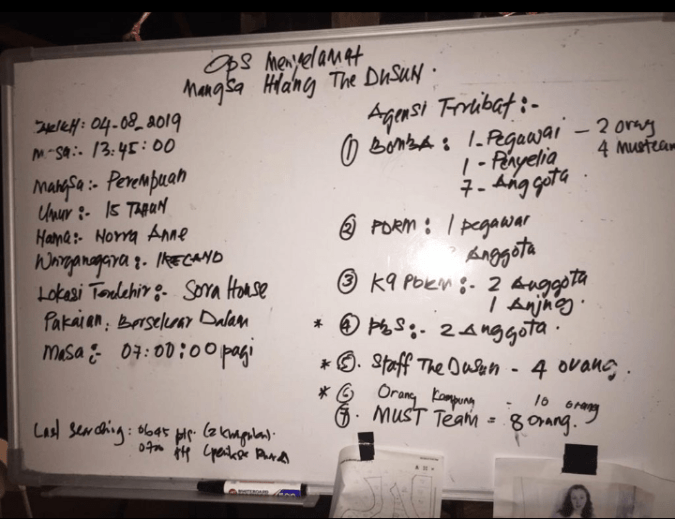 Ops Menyelamat
Mangsa Hilang The Dusun.
04-08-2019
13:45:00
Mangsa:- Perempuan
Umur:- 15 TAHUN
Nama:- Norra Anne
IRELAND
Lokasi Terakhir:- Sora House
Pakaian: Berseluar Dalam
Masa:- 07:00:00 pagi
Last Searching: 0645
Agensi Terlibat:-
① BOMBA: 1-Pegawai - 2 orang
1 - Penyelia 4 Musteam
7- Anggota
② PDRM: 1 pegawai
Anggota
③ K9 PDRM:- 2 Anggota
1 Anjing.
* ④ 2 Anggota.
* ⑤. Staff The Dusun - 4 orang.
* ⑥ Orang Kampung = 10 orang
⑦. MUST Team = 8 orang.